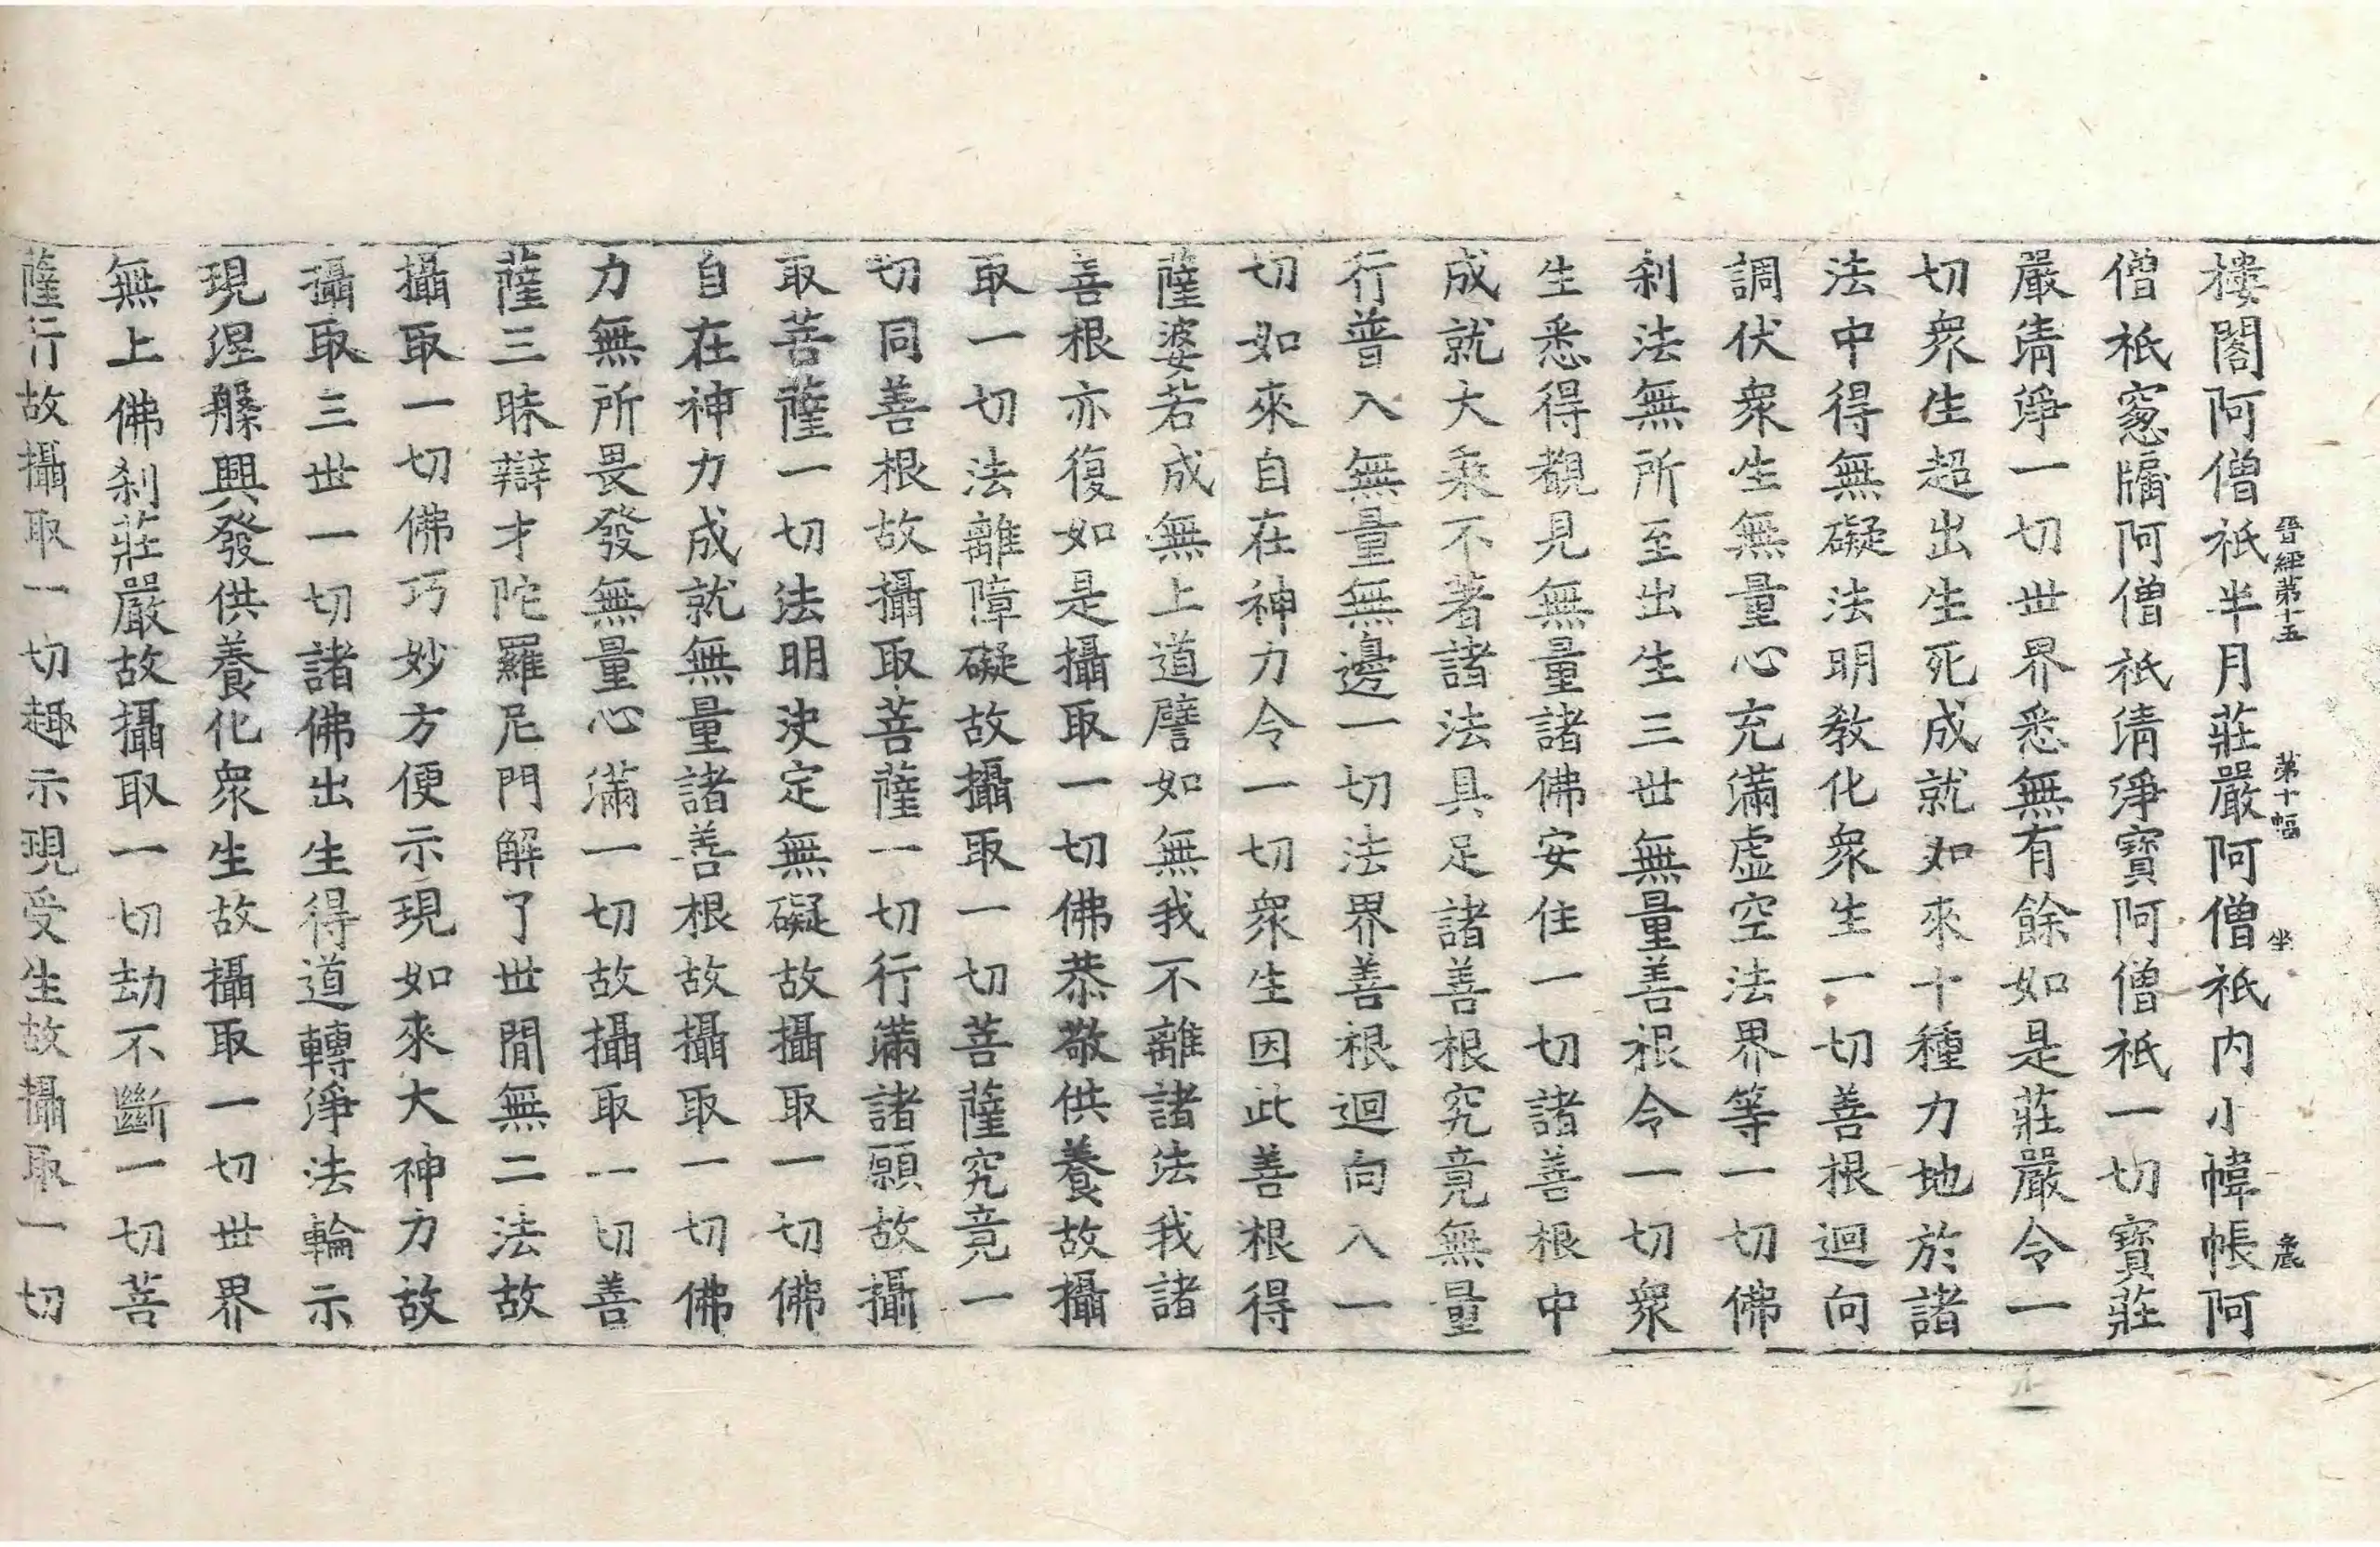 晉經第十五 第十幅 坐
樓閣阿僧祇半月莊嚴阿僧祇内小幃帳阿
僧祇窓牖阿僧祇清淨寶阿僧祇一切寶莊
嚴清淨一切世界悉無有餘如是莊嚴令一
切衆生超出生死成就如來十種力地於諸
法中得無礙法明教化衆生一切善根迴向
調伏衆生無量心充滿虛空法界等一切佛
刹法無所至出生三世無量善根令一切衆
生悉得觀見無量諸佛安住一切諸善根中
成就大乘不著諸法具足諸善根究竟無量
行普入無量無邊一切法界善根迴向入一
切如來自在神力令一切衆生因此善根得
薩婆若成無上道譬如無我不離諸法我諸
善根亦復如是攝取一切佛恭敬供養故攝
取一切法離障礙故攝取一切菩薩究竟一
切同善根故攝取菩薩一切行滿諸願故攝
取菩薩一切法明決定無礙故攝取一切佛
自在神力成就無量諸善根故攝取一切佛
力無所畏發無量心滿一切故攝取一切善
薩三昧辯才陀羅尼門解了世間無二法故
攝取一切佛巧妙方便示現如來大神力故
攝取三世一切諸佛出生得道轉淨法輪示
現涅槃興發供養化衆生故攝取一切世界
無上佛刹莊嚴故攝取一切劫不斷一切菩
薩行故攝取一切趣示現受生故攝取一切